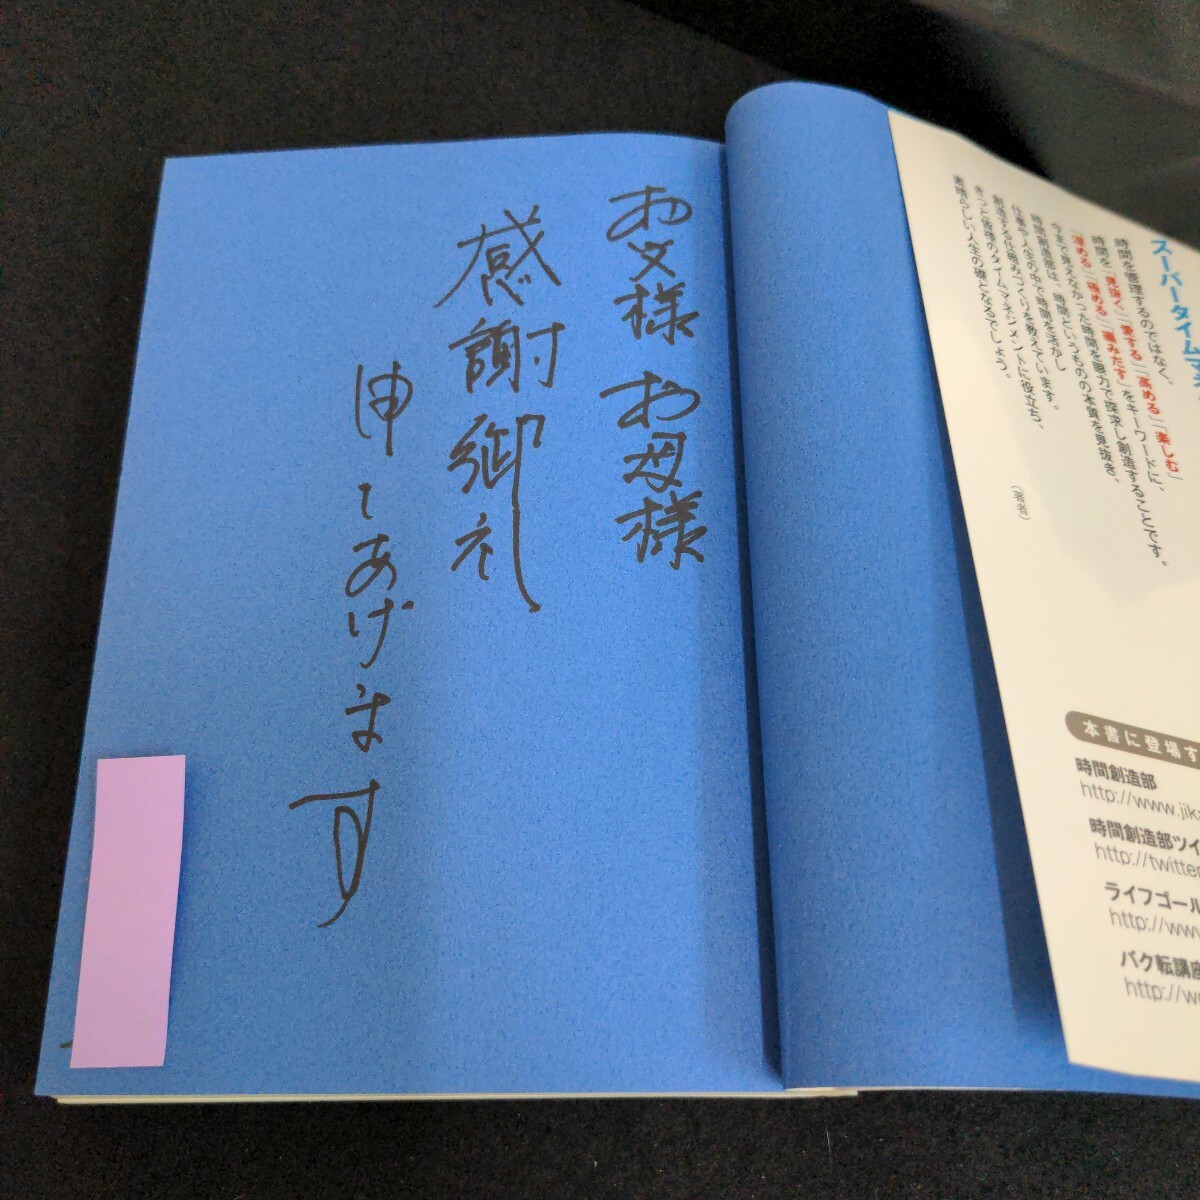 お父様 お母様
感謝御礼
申しあげます
スーパータイムマネ
時間を管理するのではなく、
時間を「見抜く」「愛する」「高める」「楽しむ」
「深める」「極める」「編みだす」をキーワードに、
今まで見えなかった時間を魅力で探求し創造することです。
時間創造部は、時間というものの本質を見抜き、
仕事や人生の中で時間を活かし
創造する仕組みづくりを教えています。
きっと皆様のタイムマネジメントに役立ち、
素晴らしい人生の礎となるでしょう。
(著者)
本書に登場す
時間創造部
http://www.jika
時間創造部ツイ
http://twitter
ライフゴール
http://www.
バク転講座
http://w